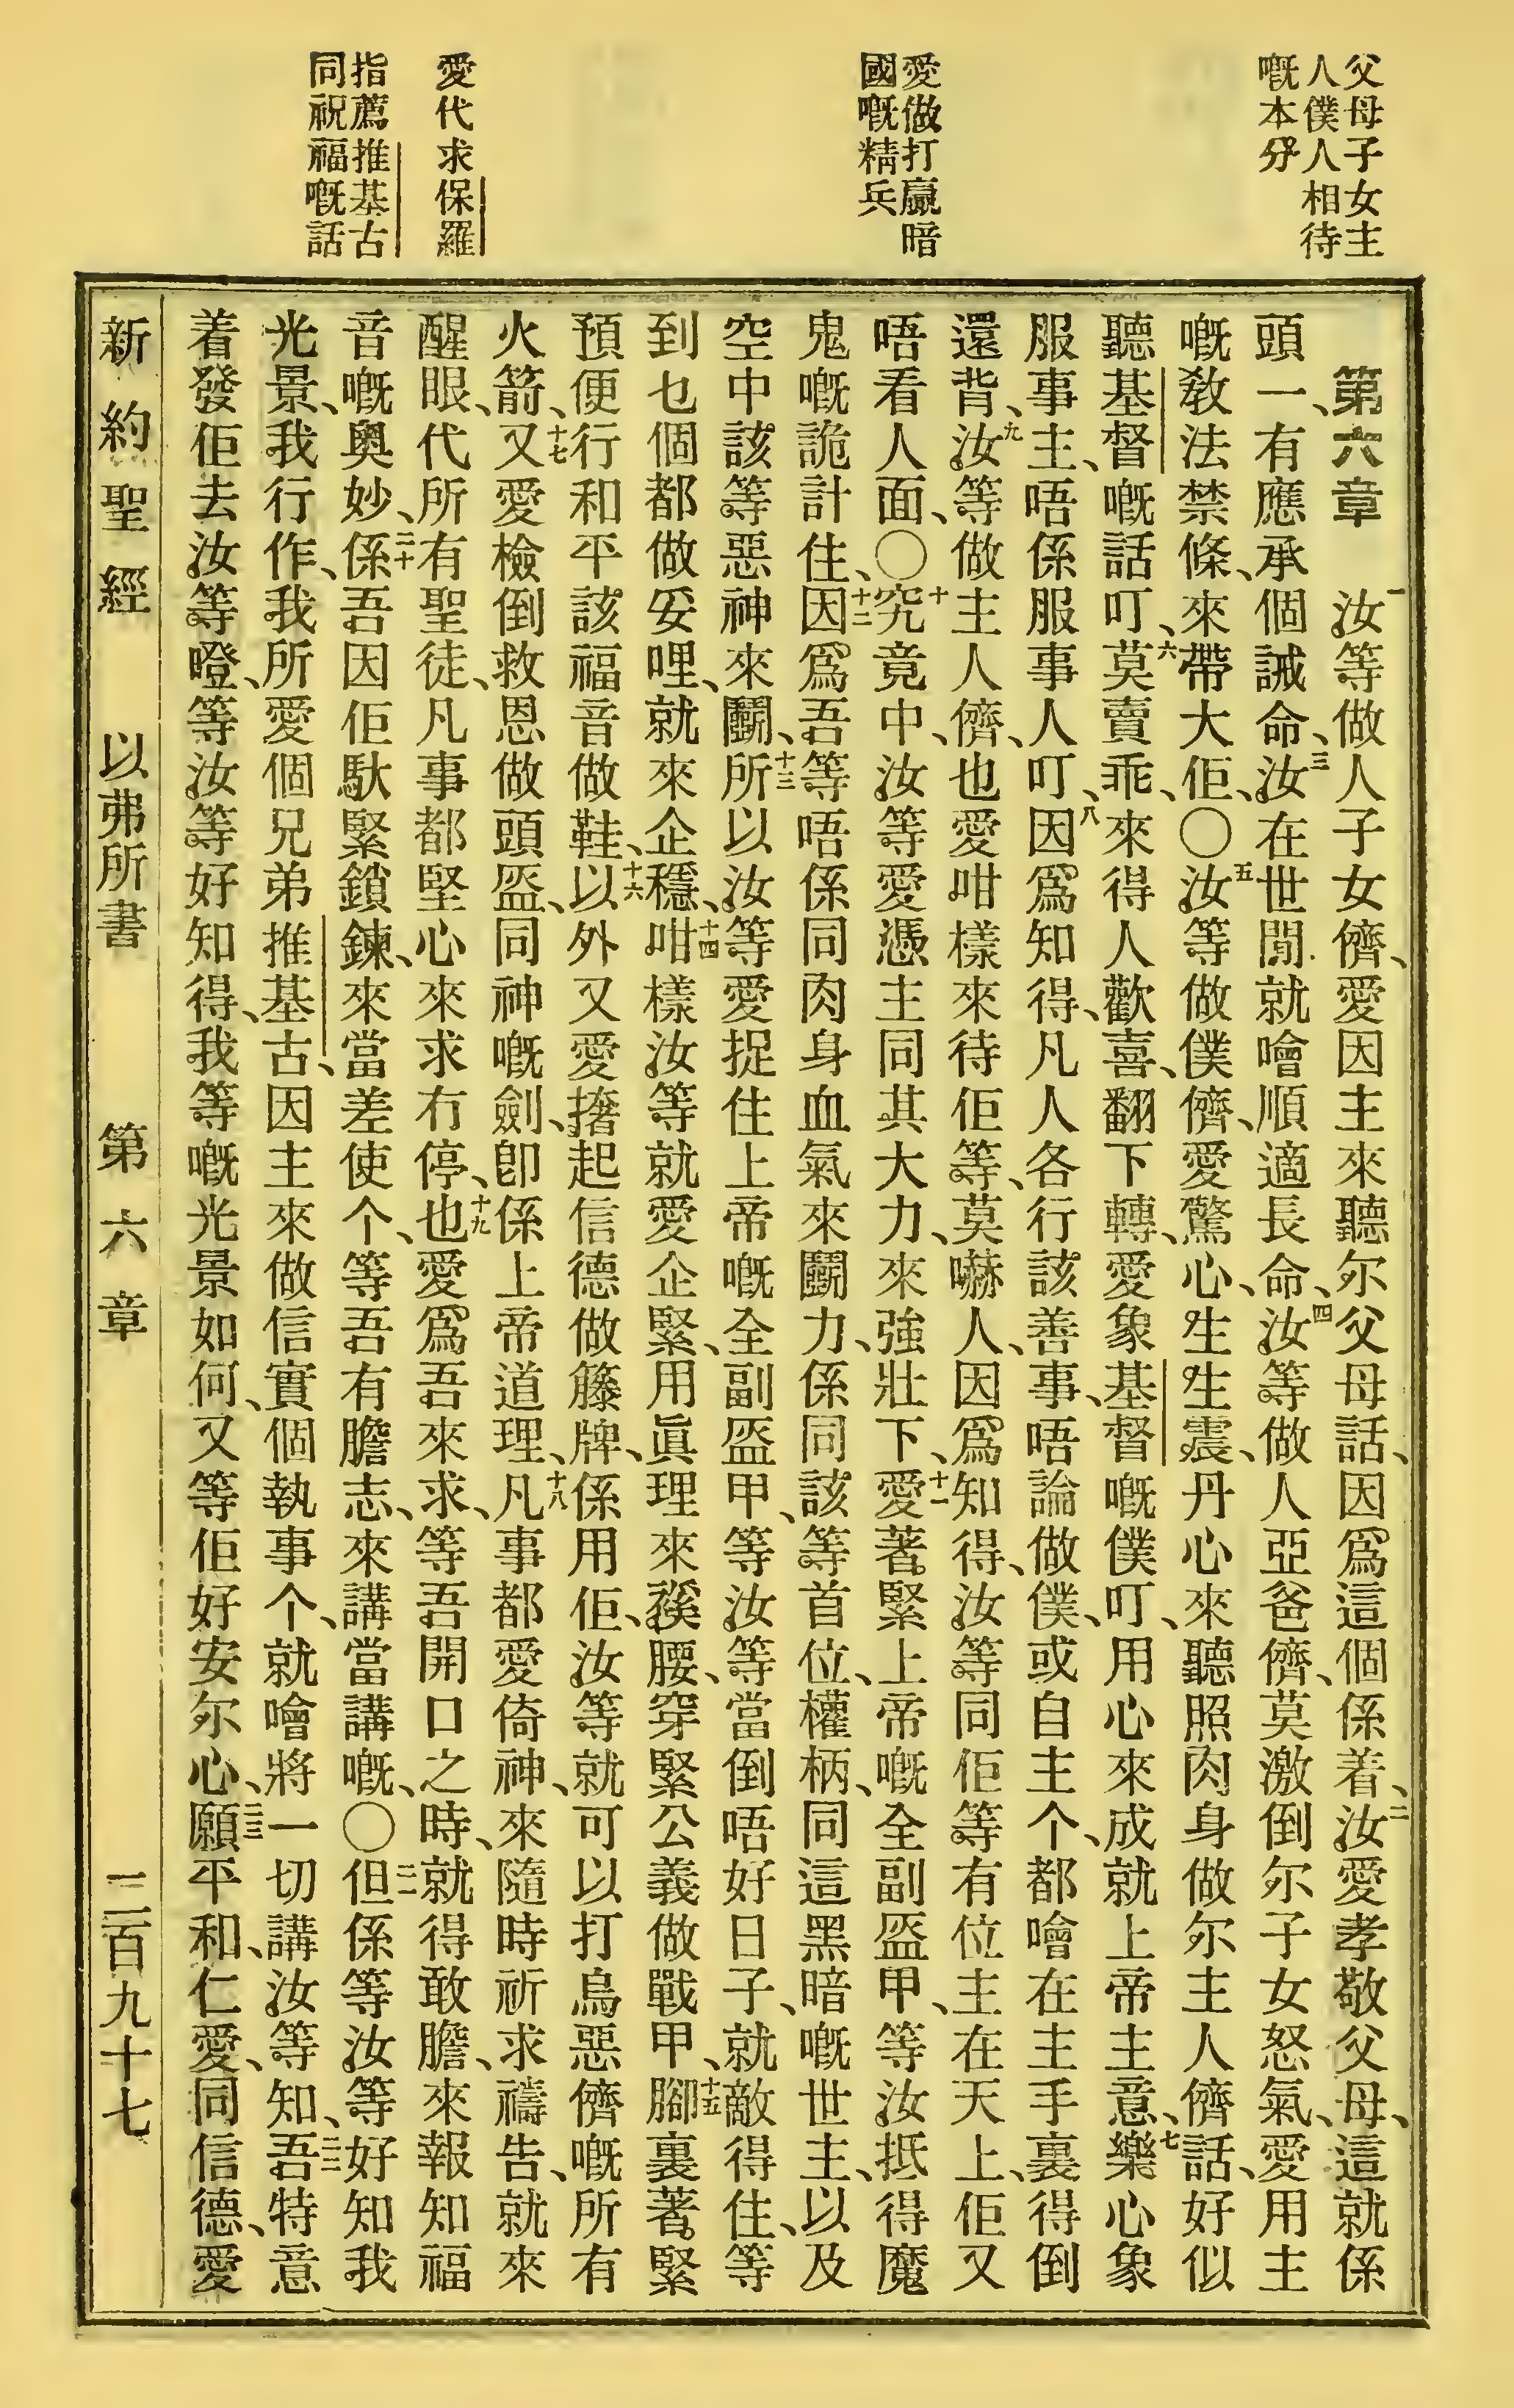 父母子女主
人僕人相待
嘅本分
愛做打贏暗
國嘅精兵
愛代求保羅
指薦推基古
同祝福嘅話
第六章 一汝等做人子女儕、愛因主來聽尔父母話、因爲這個係着、二汝愛孝敬父母、這就係
頭一、有應承個誡命、三汝在世間就噲順適長命、四汝等做人亞爸儕、莫激倒尔子女怒氣、愛用主
嘅敎法禁條、來帶大佢、〇五汝等做僕儕、愛驚心、生生震、丹心來聽照肉身做尔主人儕話、好似
聽基督嘅話叮、六莫賣乖、來得人歡喜、翻下轉、愛象基督嘅僕叮、用心來成就上帝主意、七樂心象
服事主、唔係服事人叮、八因爲知得、凡人各行該善事、唔論做僕、或自主个、都噲在主手裏得倒
還背、九汝等做主人儕、也愛咁樣來待佢等、莫嚇人、因爲知得、汝等同佢等有位主在天上、佢又
唔看人面、〇十究竟中、汝等愛憑主同其大力、來強壯下、十一愛著緊上帝嘅全副盔甲、等汝抵得魔
鬼嘅詭計住、十二因爲吾等唔係同肉身血氣來鬭力、係同該等首位、權柄、同這黑暗嘅世主、以及
空中該等惡神來鬭、十三所以汝等愛捉住上帝嘅全副盔甲、等汝等當倒唔好日子、就敵得住、等
到乜個都做妥哩、就來企穩、十四咁樣汝等就愛企緊、用眞理來𧞅腰、穿緊公義做戰甲、十五腳裏著緊
預便行和平該福音做鞋、十六以外又愛撦起信德做籐牌、係用佢、汝等就可以打烏惡儕嘅所有
火箭、十七又愛檢倒救恩做頭盔、同神嘅劍、卽係上帝道理、十八凡事都愛倚神、來隨時祈求禱告、就來
醒眼、代所有聖徒、凡事都堅心來求冇停、十九也愛爲吾來求、等吾開口之時、就得敢膽、來報知福
音嘅奧妙、二十係吾因佢馱緊鎖鍊、來當差使个、等吾有膽志、來講當講嘅、〇二一但係等汝等好知我
光景、我行作、我所愛個兄弟推基古、因主來做信實個執事个、就噲將一切講汝等知、二二吾特意
着發佢去汝等噔、等汝等好知得、我等嘅光景如何、又等佢好安尔心、二三願平和、仁愛、同信德、愛
新約聖經 以弗所書 第六章 三百九十七